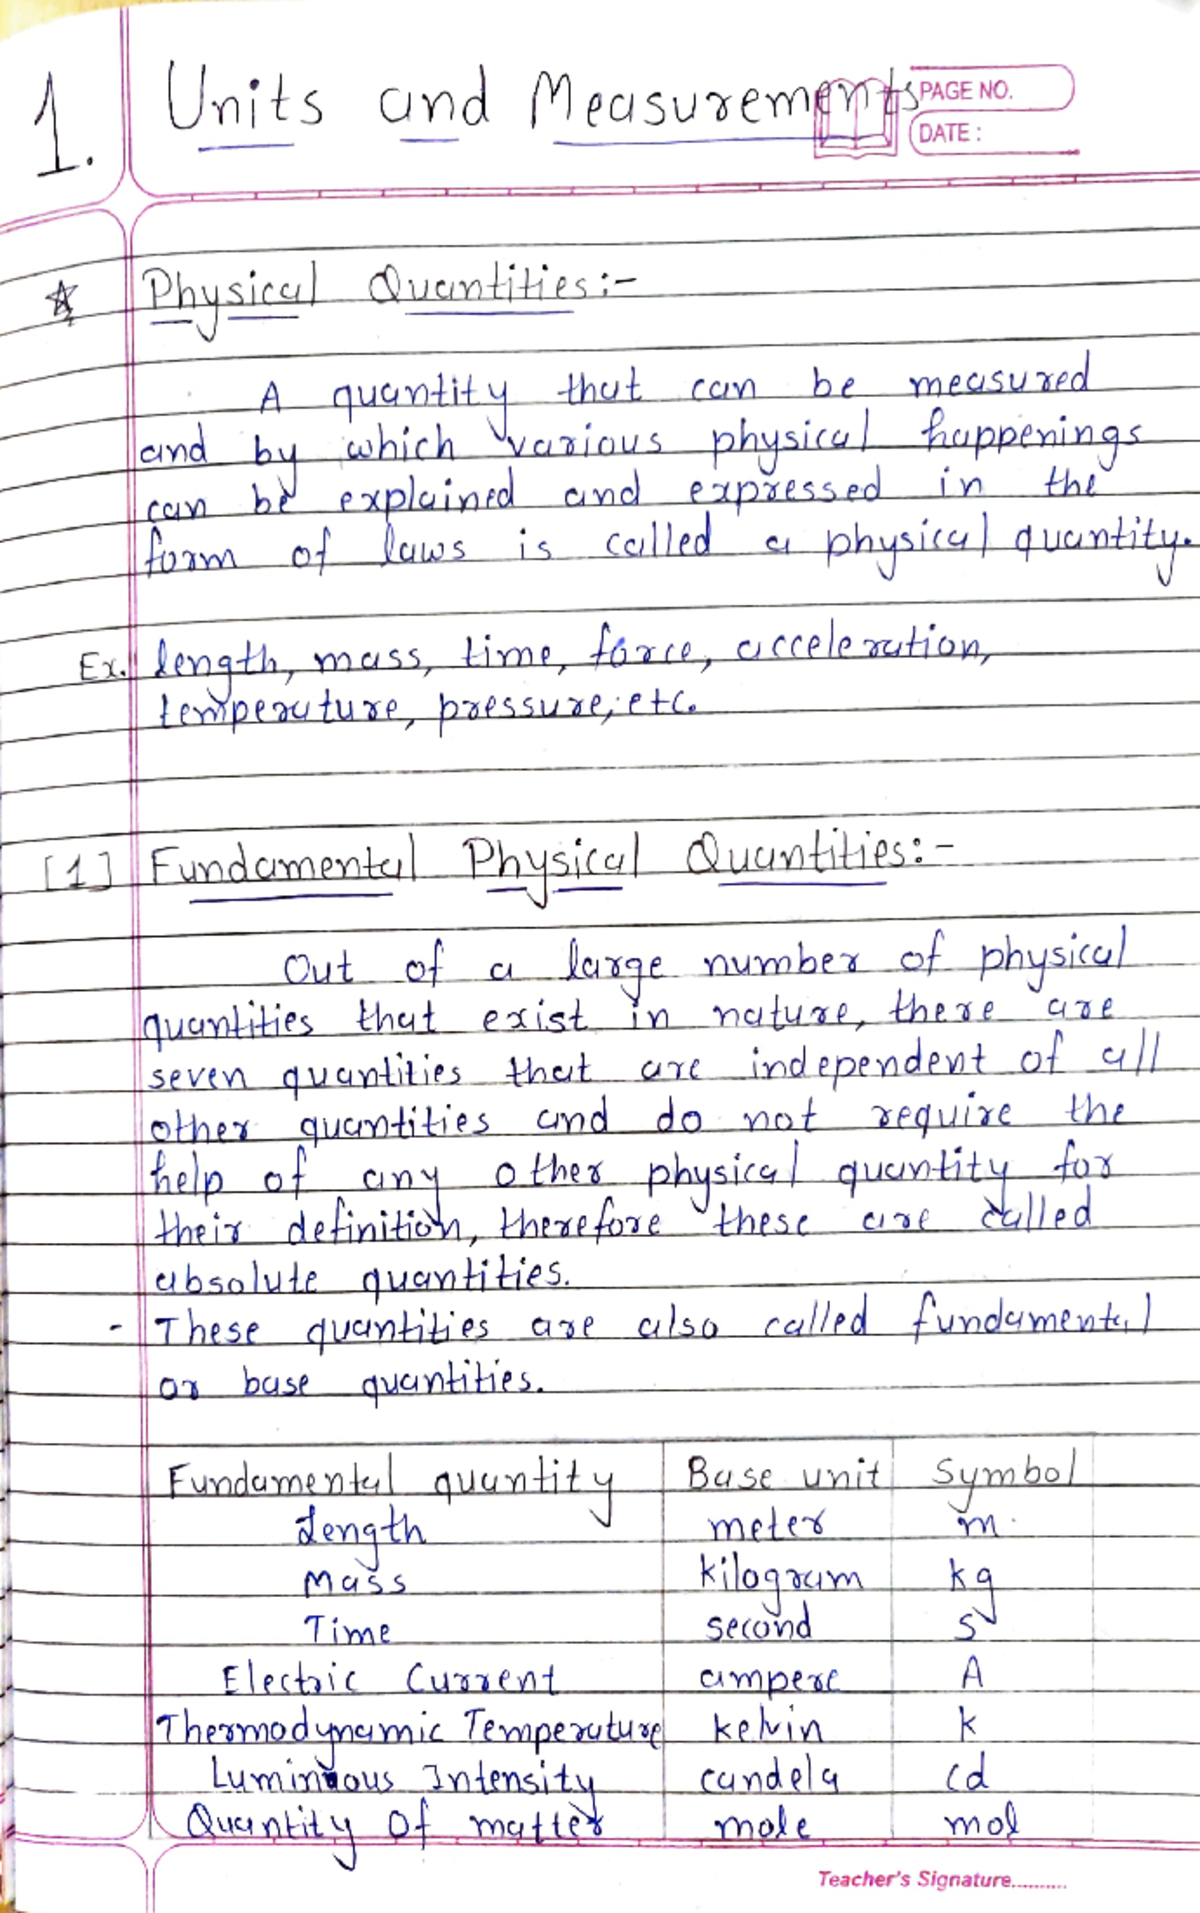 1. Units and Measurements
PAGE NO.
DATE :
☆ Physical Quantities:-
A quantity that can be measured
and by which various physical happenings
can be explained and expressed in the
form of laws is called a physical quantity.
Ex. length, mass, time, force, acceleration,
temperature, pressure, etc.
[1] Fundamental Physical Quantities:-
Out of a large number of physical
quantities that exist in nature, there are
seven quantities that are independent of all
other quantities and do not require the
help of any other physical quantity for
their definition, therefore these are called
absolute quantities.
- These quantities are also called fundamental
or base quantities.
Fundamental quantity Base unit Symbol
Length meter m
Mass kilogram kg
Time second s
Electric Current ampere A
Thermodynamic Temperature kelvin k
Luminuous Intensity candela cd
Quantity Of matter mole mol
Teacher's Signature..........